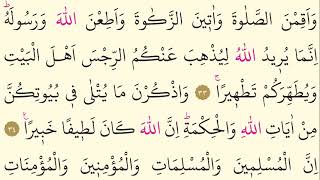 وَاَقِمْنَ الصَّلٰوةَ وَاٰت۪ينَ الزَّكٰوةَ وَاَطِعْنَ اللّٰهَ وَرَسُولَهُۜ
اِنَّمَا يُر۪يدُ اللّٰهُ لِيُذْهِبَ عَنْكُمُ الرِّجْسَ اَهْلَ الْبَيْتِ
وَيُطَهِّرَكُمْ تَطْه۪يرًاۚ ٣٣ وَاذْكُرْنَ مَا يُتْلٰى ف۪ي بُيُوتِكُنَّ
مِنْ اٰيَاتِ اللّٰهِ وَالْحِكْمَةِۜ اِنَّ اللّٰهَ كَانَ لَط۪يفًا خَب۪يرًا۟ ٣٤
اِنَّ الْمُسْلِم۪ينَ وَالْمُسْلِمَاتِ وَالْمُؤْمِن۪ينَ وَالْمُؤْمِنَاتِ